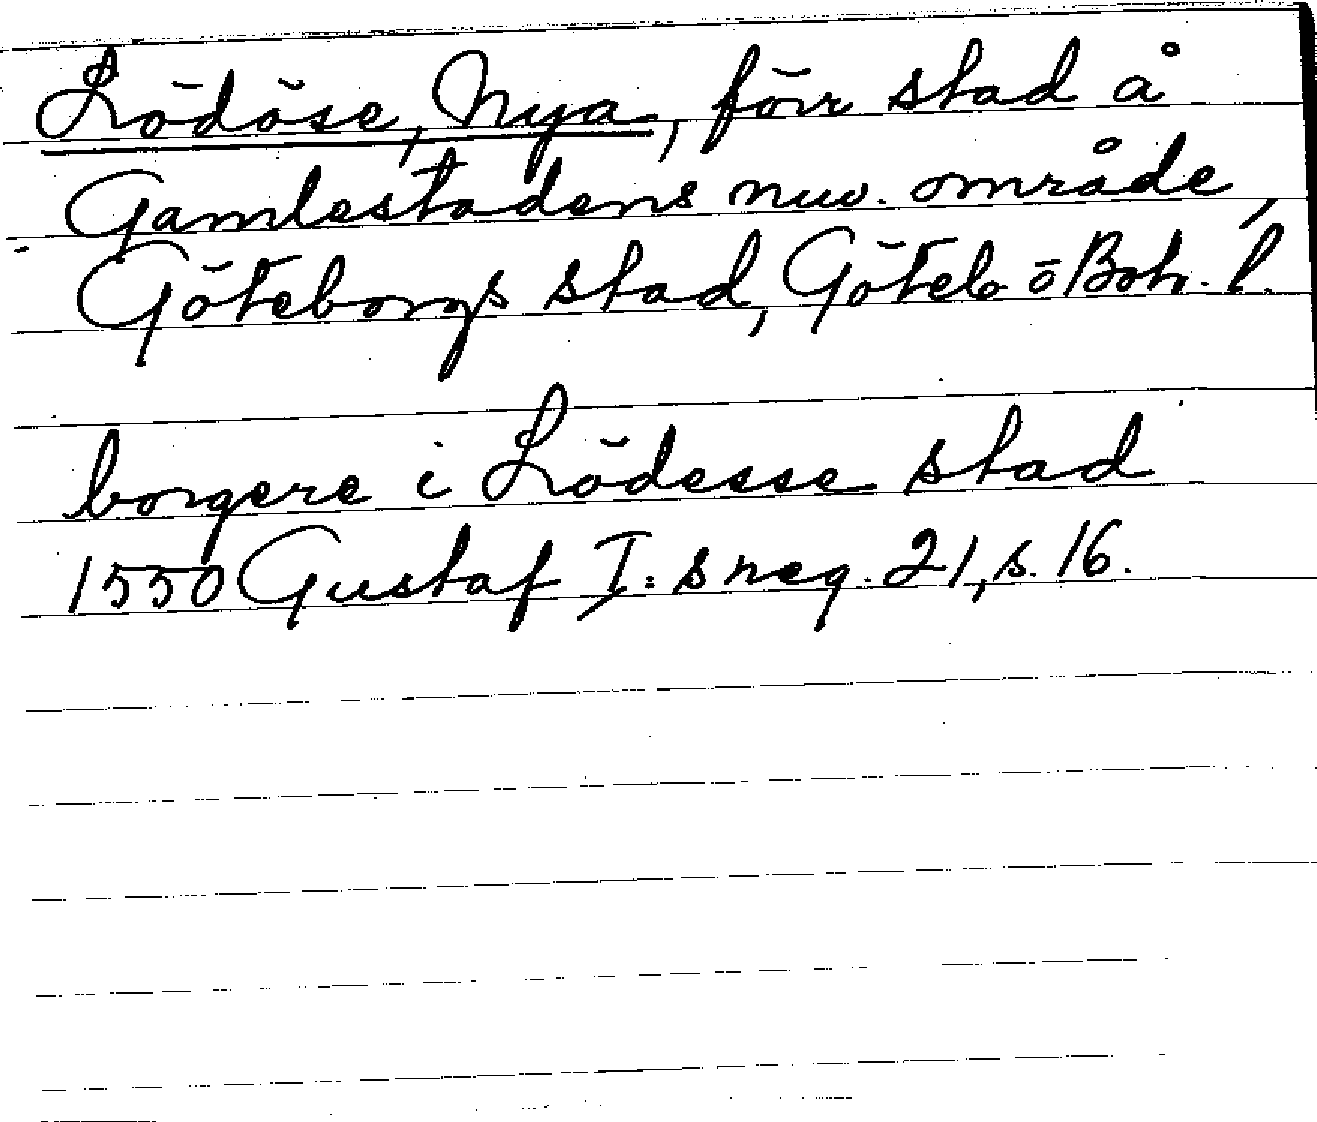 Lödöse, Nya, förr stad å
Gamlestadens nuv. område,
Göteborgs stad, Göteb o Boh. l.
borgere i Lödesse stad
1550 Gustaf I: s reg. 21, s. 16.